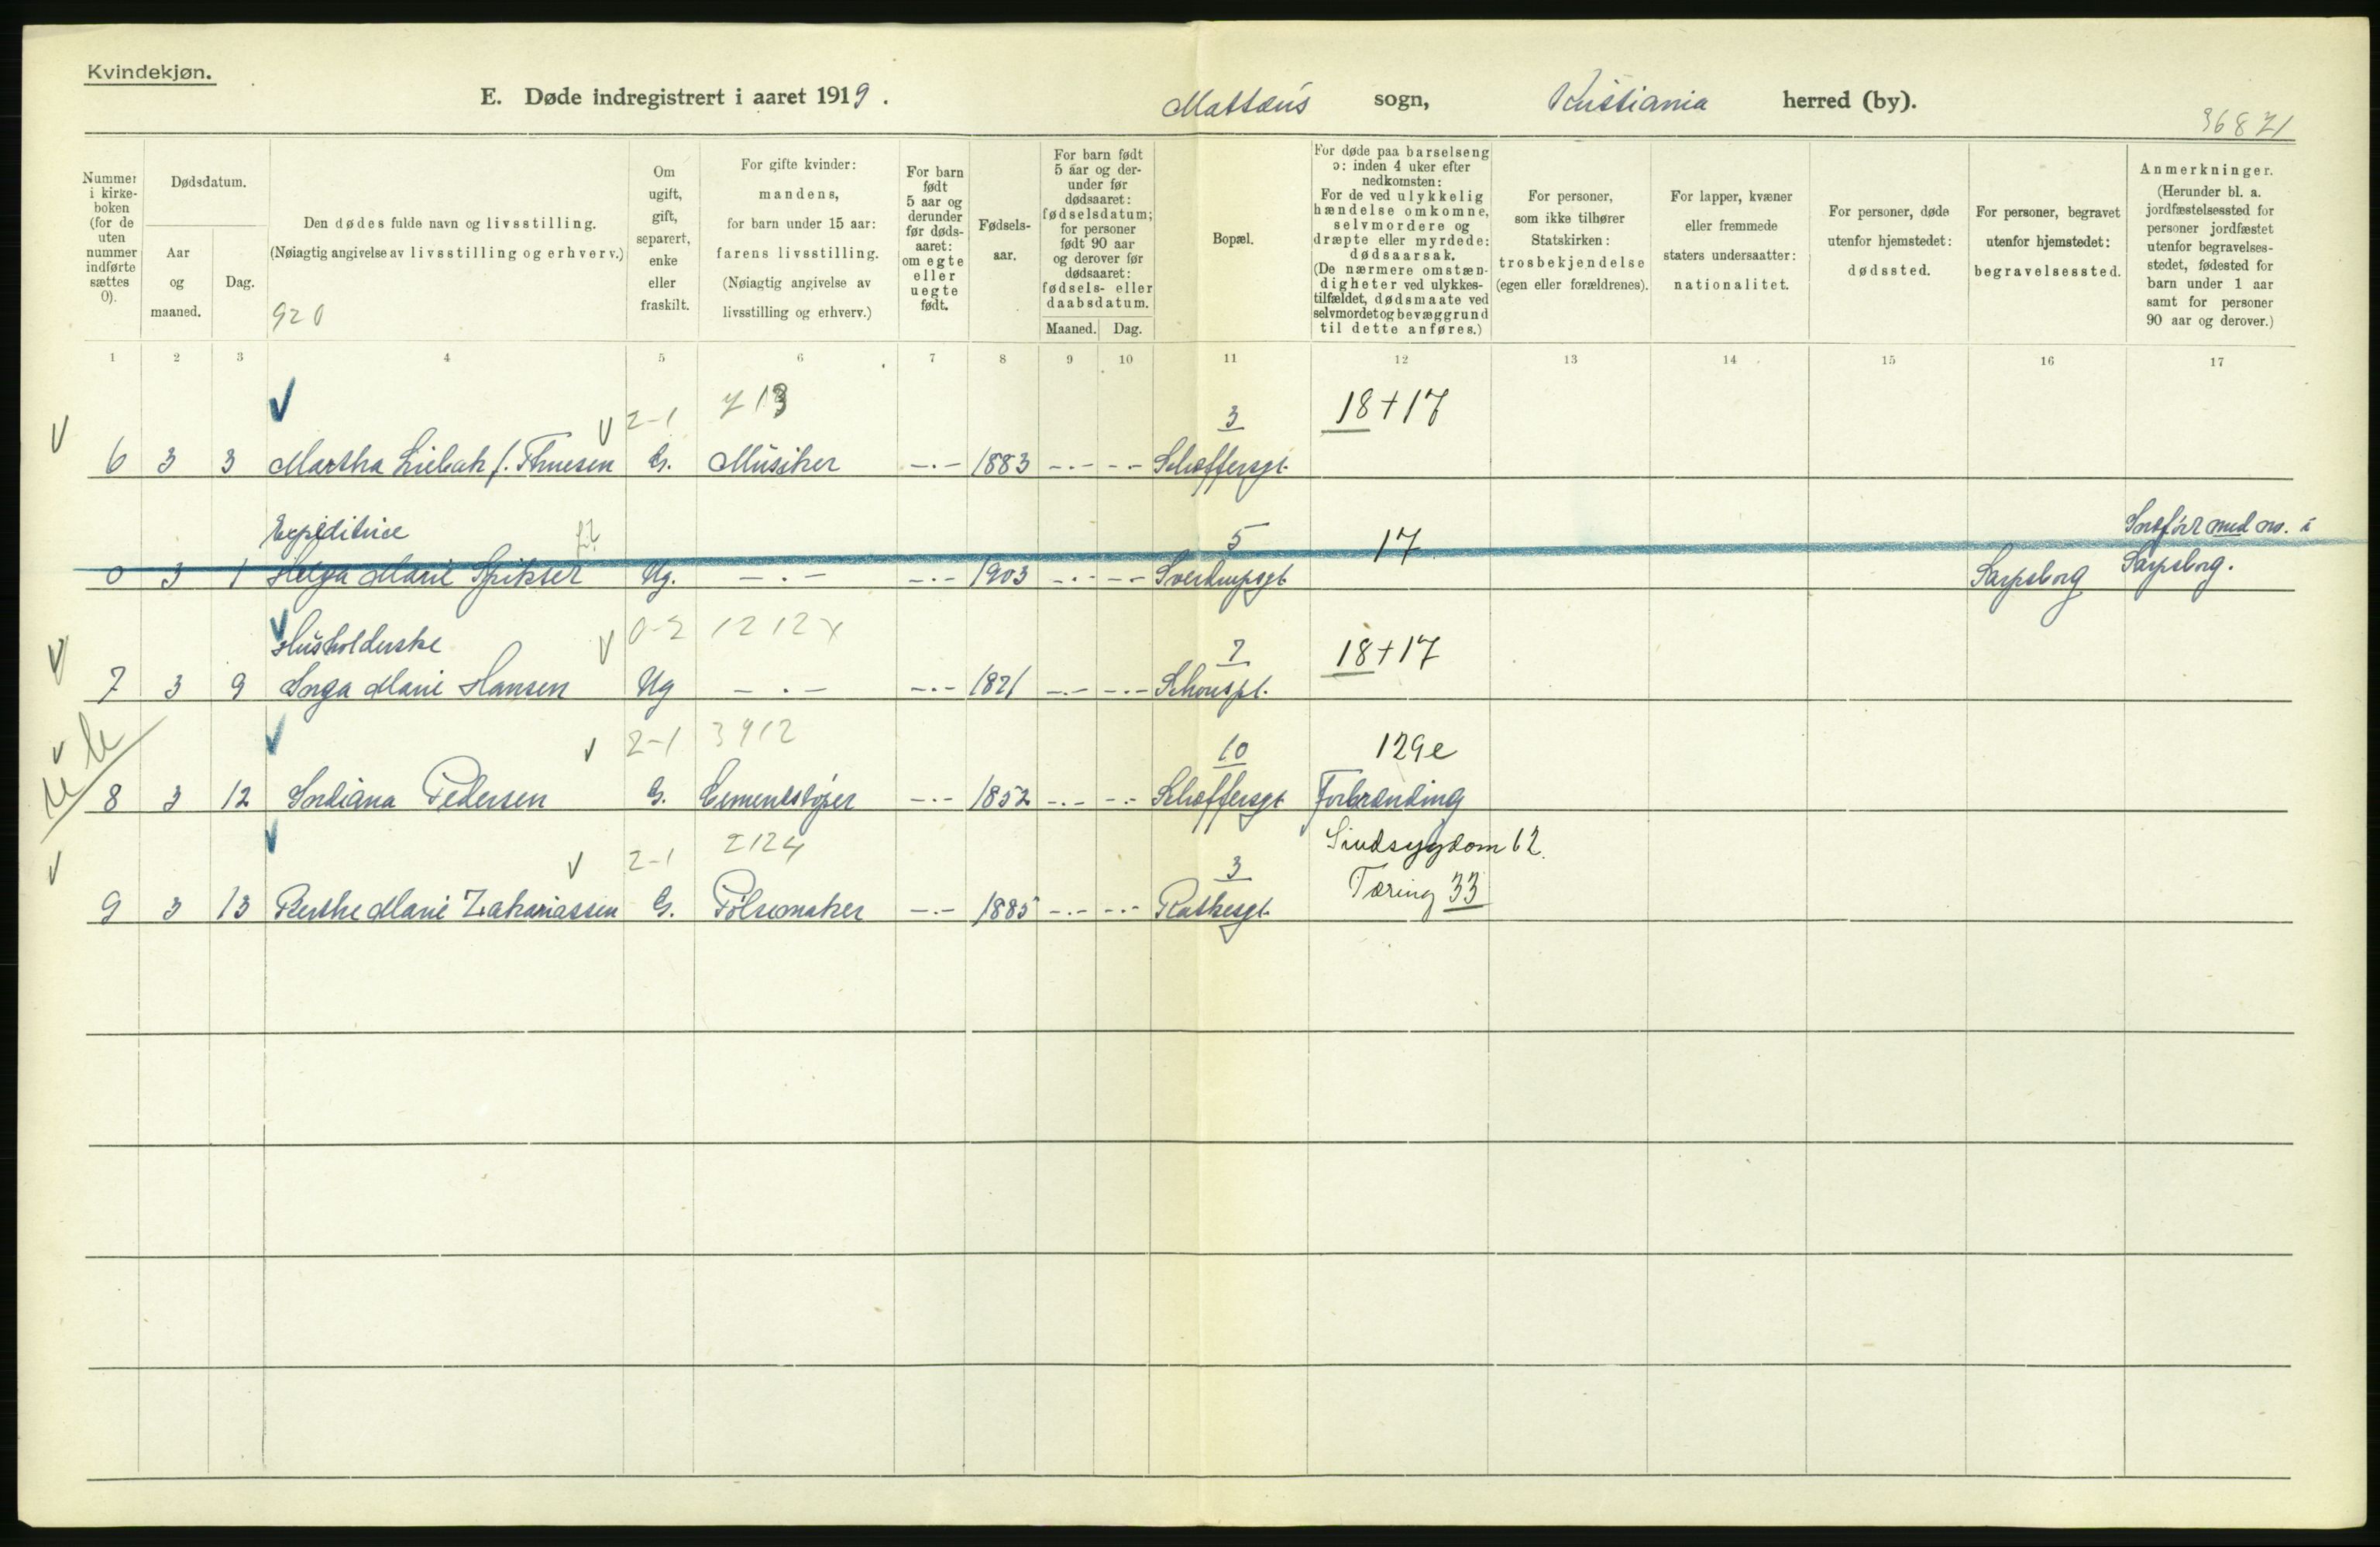 Kvindekjøn.
E. Døde indregistrert i aaret 1919. Mattæus sogn, Kristiania herred (by).
36821
Nummer i kirkeboken (for de uten nummer indførte sættes 0).
Dødsdatum.
Aar og maaned.
Dag.
Den dødes fulde navn og livsstilling.
(Nøiagtig angivelse av livsstilling og erhverv.)
920
Om ugift, gift, separert, enke eller fraskilt.
For gifte kvinder: mandens, for barn under 15 aar: farens livsstilling. (Nøiagtig angivelse av livsstilling og erhverv.)
For barn født 5 aar og derunder før dødsaaret: om egte eller uegte født.
Fødselsaar.
For barn født 5 aar og derunder før dødsaaret: fødselsdatum; for personer født 90 aar og derover før dødsaaret: fødsels- eller daabsdatum.
Maaned. Dag.
Bopæl.
For døde paa barselseng ɔ: inden 4 uker efter nedkomsten: For de ved ulykkelig hændelse omkomne, selvmordere og dræpte eller myrdede: dødsaarsak. (De nærmere omstændigheter ved ulykkestilfældet, dødsmaate ved selvmordet og bevæggrund til dette anføres.)
For personer, som ikke tilhører Statskirken: trosbekjendelse (egen eller forældrenes).
For lapper, kvæner eller fremmede staters undersaatter: nationalitet.
For personer, døde utenfor hjemstedet: dødssted.
For personer, begravet utenfor hjemstedet: begravelsessted.
Anmerkninger. (Herunder bl. a. jordfæstelsessted for personer jordfæstet utenfor begravelsesstedet, fødested for barn under 1 aar samt for personer 90 aar og derover.)
1 2 3 4 5 6 7 8 9 10 11 12 13 14 15 16 17
2-1 713 3 18+17
6 3 3 Martha Liebak f. Thuesen G. Musiker -.- 1883 -.- -.- Schæffersgt.
Expeditrice 5 17 Indført med no. i
0 3 1 Helga Marie Spikser Ug. -.- -.- 1903 -.- -.- Sverdrupsgt. Sarpsborg Sarpsborg.
Husholderske 0-2 1212x 7 18+17
7 3 9 Inga Marie Hansen Ug -.- -.- 1821 -.- -.- Schouspl.
2-1 3912 10 129e
8 3 12 Indiana Pedersen G. Cementstøper -.- 1852 -.- -.- Schæffersgt Forbrænding
2-1 2124 3 Sindsygdom 62.
Tæring 33
9 3 13 Berthe Marie Zakariassen G. Pølsemaker -.- 1885 -.- -.- Rathkesgt.